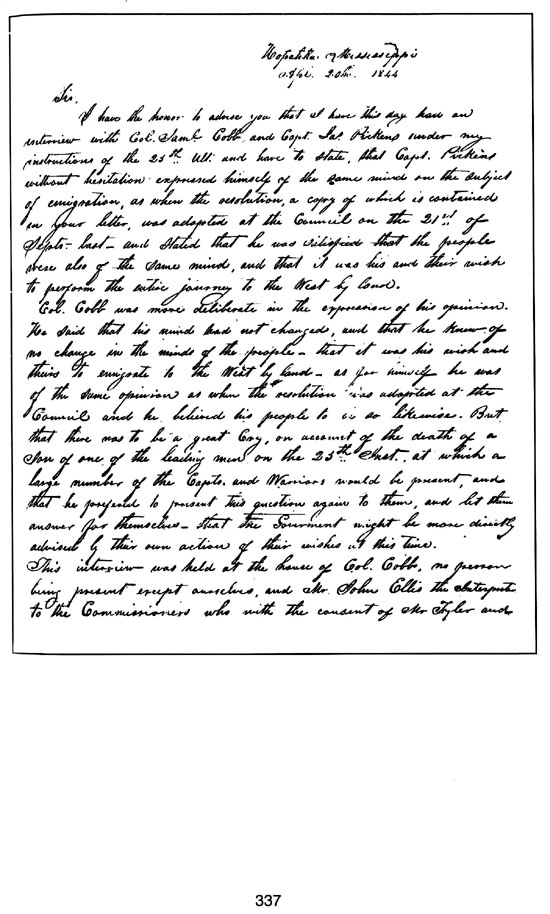 Hopahka Mississippi
Apl. 20th. 1844
Sir,
I have the honor to advise you that I have this day had an
interview with Col. Saml. Cobb, and Capt. Jas. Pickens under my
instructions of the 25th Ult. and have to state, that Capt. Pickens
without hesitation expressed himself of the same mind on the subject
of emigration, as when the resolution, a copy of which is contained
in your letter, was adopted at the Council on the 21st of
Septr. last - and stated that he was satisfied that the people
were also of the same mind, and that it was his and their wish
to perform the entire journey to the West by land.
Col. Cobb was more deliberate in the expression of his opinion.
He said that his mind had not changed, and that he knew of
no change in the minds of the people - that it was his wish and
theirs to emigrate to the West by land - as for himself he was
of the same opinion as when the resolution was adopted at the
Council and he believed his people to be so likewise. But
that there was to be a great Cry, on account of the death of a
Son of one of the leading men on the 25th Inst. at which a
large number of the Capts. and Warriors would be present, and
that he preferred to present this question again to them, and let them
answer for themselves - that the Goverment might be more directly
advised by their own action of their wishes at this time.
This interview was held at the house of Col. Cobb, no person
being present except ourselves, and Mr. John Ellis the Interpreter
to the Commissioners who with the consent of Mr Tyler and
337